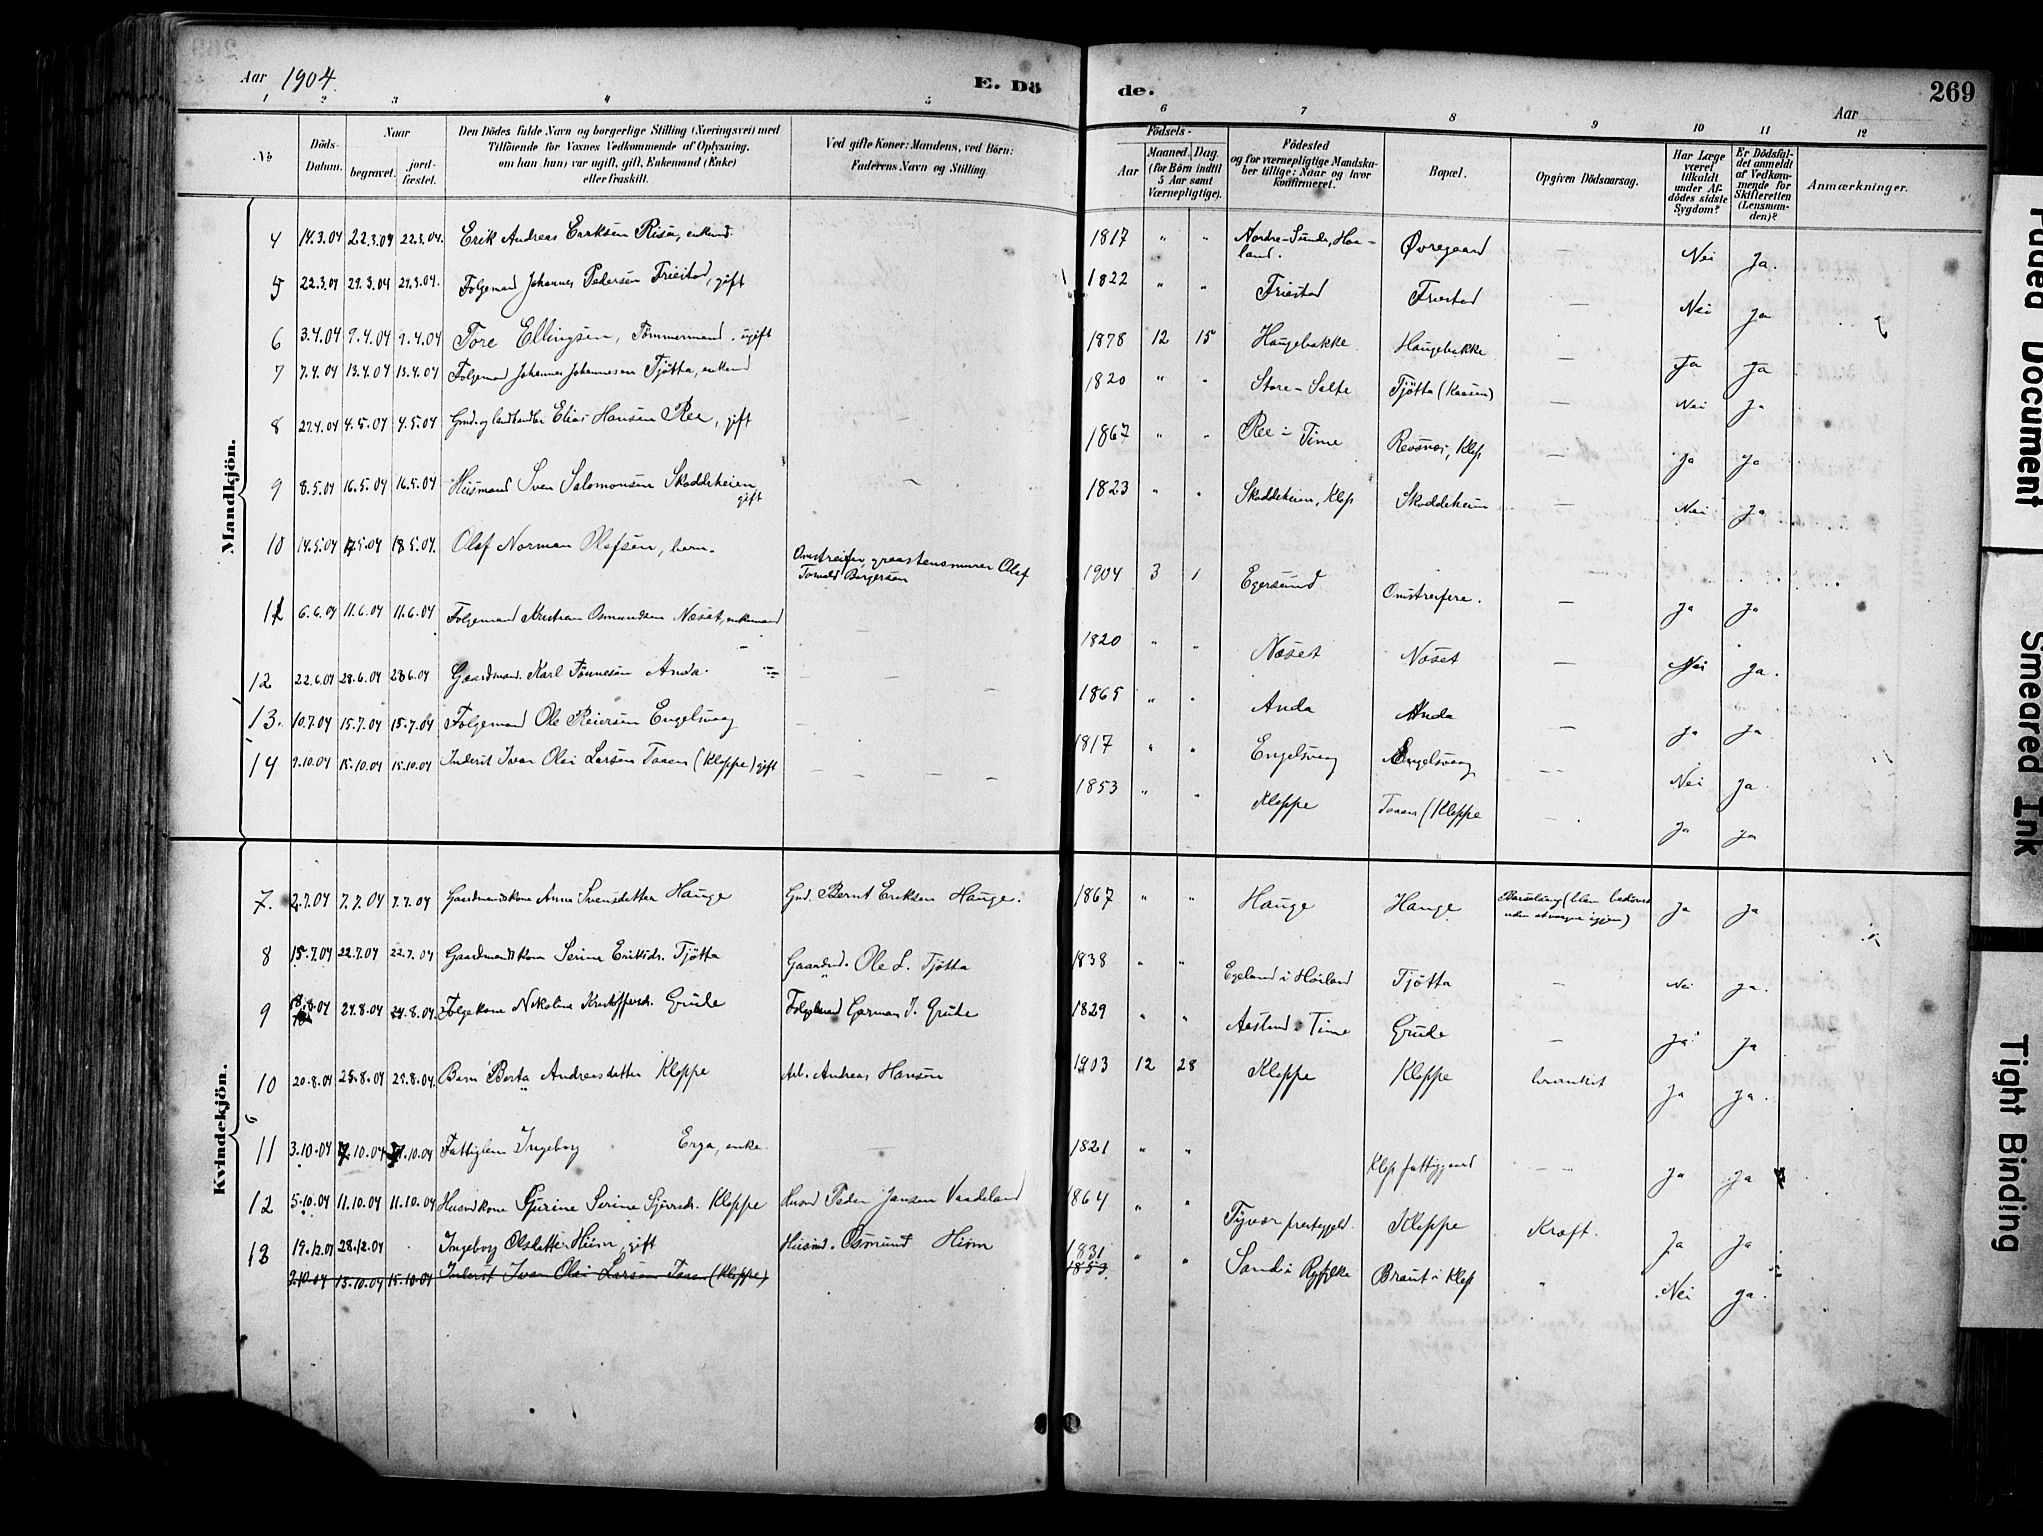 Aar 1904.
E. Dö
de.
269
Aar
1 2 3 4 5 6 7 8 9 10 11 12
No
Döds-Datum.
Naar
begravet.
jord-fæstet.
Den Dödes fulde Navn og borgerlige Stilling (Næringsvei) med
Tilföiende for Voxnes Vedkommende af Oplysning.
om han (hun) var ugift, gift, Enkemand (Enke)
eller fraskilt.
Ved gifte Koner: Mandens, ved Börn:
Faderens Navn og Stilling
Födsels-
Aar
Maaned. Dag.
(for Börn indtil
5 Aar samt
Værnepligtige).
Födested
og for værnepligtige Mandska-
ber tillige: Naar og hvor
konfirmeret.
Bopæl.
Opgiven Dödsaarsag.
Har Læge
været
tilkaldt
under Af-
dödes sidste
Sygdom?
Er Dödsfal-
det anmeldt
af Vedkom-
mende for
Skifteretten
(Lensman-
den)?
Anmærkninger.
Mandkjön.
4 14.3.04 22.3.04 22.3.04. Erik Andreas Eriksen Risa, enkmd. 1817 " " Nordre-Sunde, Haa-land. Øvregaard Nei Ja.
5 22.3.04 29.3.04 29.3.04. Folgemand Johannes Pedersen Friestad, gift 1822 " " Friestad Friestad — Nei Ja
6 3.4.04 9.4.04 9.4.04 Tore Ellingsen, Tømmermand, ugift 1878 12 15 Haugebakke Haugebakke — Ja Ja
7 7.4.04 13.4.04 13.4.04 Folgemand Johannes Johannesen Tjøtta, enkemd 1820 " " Store-Salte Tjøtta (Kaasen) — Nei Ja
8 27.4.04 4.5.04 4.5.04 Gmd. og landhandler Elias Hansen Ree, gift 1867 " " Ree i Time Revsnes, Klep — Ja Ja
9 8.5.04 16.5.04 16.5.04 Husmand Sven Salomonsen Skaddeheien, gift — 1823 " " Skaddeheien, Klep Skaddeheien — Nei Ja
10 14.5.04 17.5.04 18.5.04. Olaf Norman Olefsen, barn. Omstreifer, graastensmurer Olaf Tomeld Børgersen 1904 3 1 Egersund Omstreifere. — Ja Ja
11 6.6.04 11.6.04 11.6.04 Folgemand Kristian Osmundsen Næset, enkemand — 1820 " " Næset Næset — Nei Ja.
12 22.6.04 28.6.04 28.6.04 Gaardmand. Karl Tønnesen Anda. — 1865 " " Anda Anda — Ja Ja
13. 10.7.04 15.7.04 15.7.04 Folgemand Ole Reiersen Engelsvaag — 1817 " " Engelsvaag Engelsvaag — Nei Ja.
14 9.10.04 15.10.04 15.10.04 Inderst Ivar Olai Larsen Taaen (Kleppe) gift — 1853 " " Kleppe Taaen (Kleppe — Ja Ja
Kvindekjön.
7. 2.7.04 7.7.04 7.7.04 Gaardmandskone Anna Svensdatter Hauge Gmd. Bernt Eriksen Hauge. 1867 " " Hauge Hauge Barselseng (blev bedøvet uden at vaagne igjen) Ja Ja
8 15.7.04 22.7.04 22.7.04 Gaardmandskone Serine Eriksdr. Tjøtta Gaardmd. Ole L. Tjøtta 1838 " " Egeland i Høiland Tjøtta — Nei Ja.
9 18.8.04 24.8.04 24.8.04. Folgekone Nikoline Kristoffersdr. Grude Folgemand Garman J. Grude 1829 " " Aasland i Time Grude — Ja Ja
10 20.8.04 25.8.04 25.8.04. Barn Berta Andreasdatter Kleppe Arb. Andreas Hansen 1903 12 28 Kleppe Kleppe bronkit Ja Ja.
11 3.10.04 7.10.04 7.10.04 Fattiglem Ingeborg Erga, enke — 1821 " " Klep fattiggaard — Ja Ja
12 5.10.04 11.10.04 11.10.04 Husmdkone Gjurine Serine Sjursdr. Kleppe Husmd Peder Jansen Vaadeland 1864 " " Tysvær prestegjeld. Kleppe Kræft. Ja Ja
13 19.12.04 28.12.04 Ingeborg Olsdatter Hiim, gift Husmd. Osmund Hiim 1831 " " Sand i Ryfylke Braut i Klep " Nei Ja.
9.10.04 15.10.04 15.10.04 Inderst Ivar Olai Larsen Taaen (Kleppe) 1853
Faded Document
Smeared Ink
Tight Binding